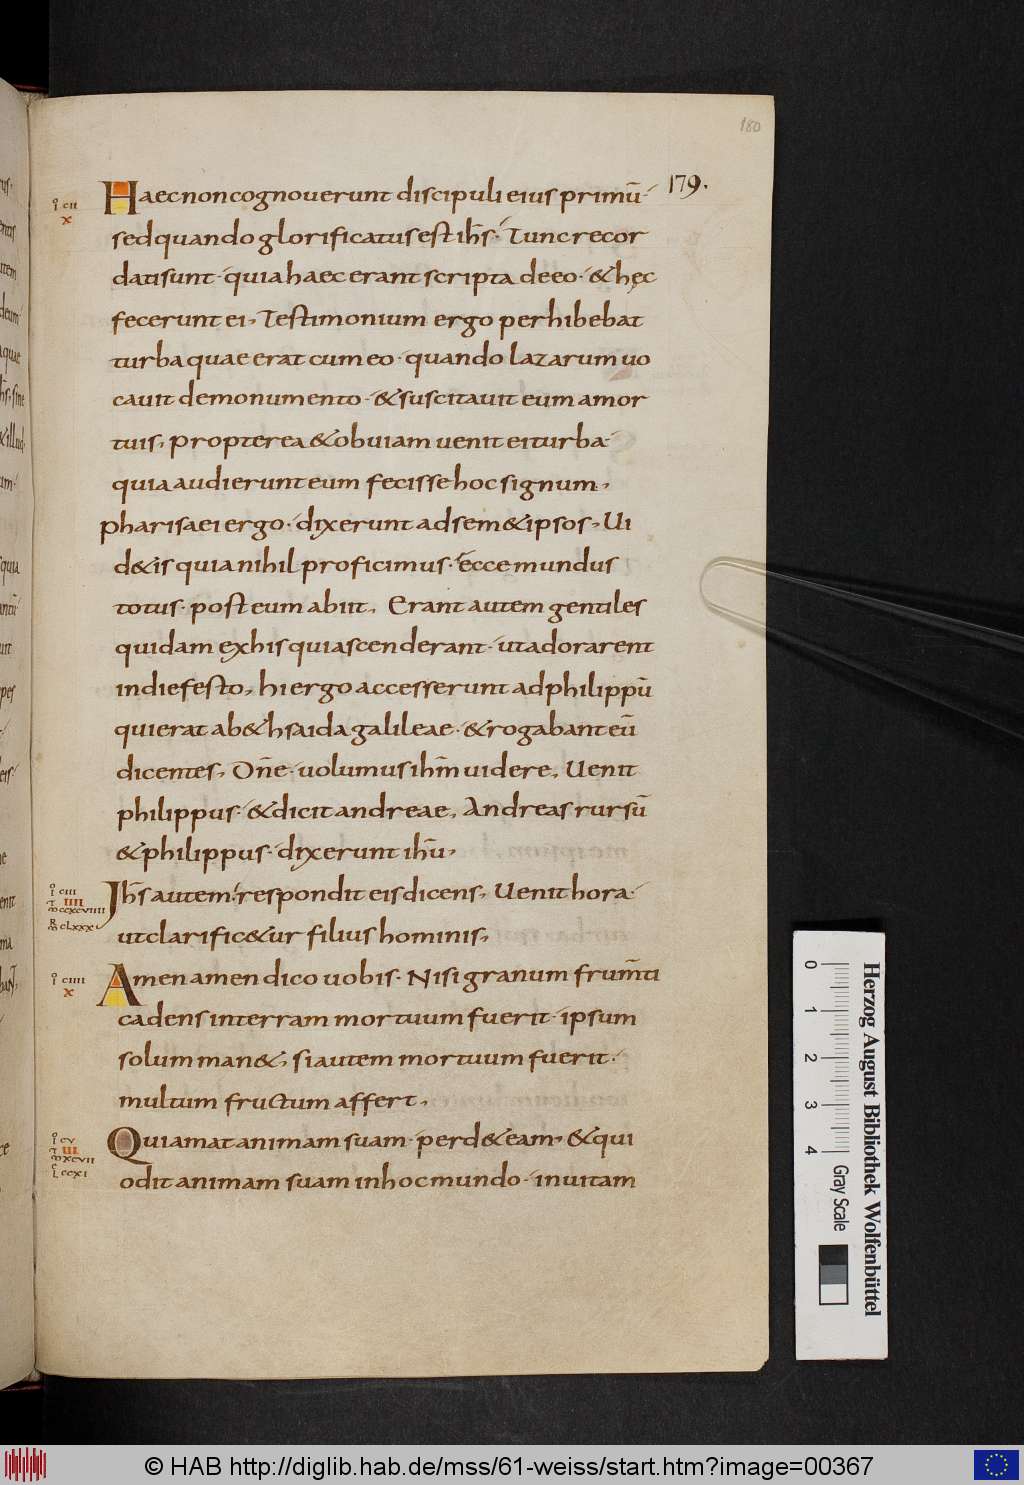 180
179.
Haec non cognouerunt discipuli eius primū·
sed quando glorificatus est ih̄s· Tunc recor
dati sunt· quia haec erant scripta de eo· & hęc
fecerunt ei, Testimonium ergo perhibebat
turba quae erat cum eo· quando lazarum uo
cauit de monumento· & suscitauit eum a mor
tuis, propterea & obuiam uenit ei turba·
quia audierunt eum fecisse hoc signum,
pharisaei ergo· dixerunt ad sem&ipsos, Ui
d&is quia nihil proficimus· ecce mundus
totus· post eum abiit, Erant autem gentiles
quidam ex his qui ascenderant· ut adorarent
in die festo, hi ergo accesserunt ad philippū
qui erat a b&hsaida galileae· & rogabant eū
dicentes, Dn̄e· uolumus ihm̄ uidere, Uenit
philippus· & dicit andreae, Andreas rursū
& philippus· dixerunt ihū,
ī ciı
x
Ih̄s autem· respondit eis dicens, Uenit hora·
ut clarific&ur filius hominis,
ī ciii
iiii
m̄ccxcviiii
m̄clxxxi
Amen amen dico uobis· Nisi granum frum̄ti
cadens in terram mortuum fuerit· ipsum
solum man&, si autem mortuum fuerit·
multum fructum affert,
ī ciiii
x
Qui amat animam suam· perd& eam, & qui
odit animam suam in hoc mundo· in uitam
ī cv
iii
m̄xcvii
l ccxi
0
1
2
3
4
Gray Scale
Herzog August Bibliothek Wolfenbüttel
© HAB http://diglib.hab.de/mss/61-weiss/start.htm?image=00367